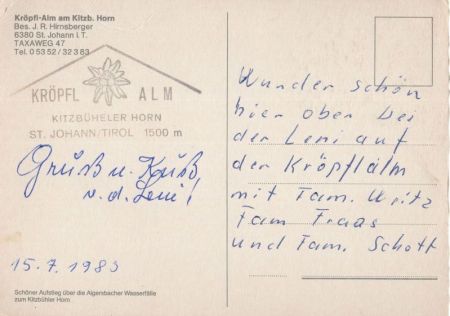 Kröpfl-Alm am Kitzb. Horn
Bes. J. R. Hirnsberger
6380 St. Johann i. T.
TAXAWEG 47
Tel. 0 53 52 / 32 3 83
KRÖPFL ALM
KITZBÜHELER HORN
ST. JOHANN/TIROL 1500 m
Gruß u. Kuß,
v. d. Leni!
15.7.1983
Schöner Aufstieg über die Aigersbacher Wasserfälle
zum Kitzbühler Horn
Wunder schön
hier ober bei
der Leni auf
der Kröpflalm
mit Fam.
Fam Fraas
und Fam. Schott